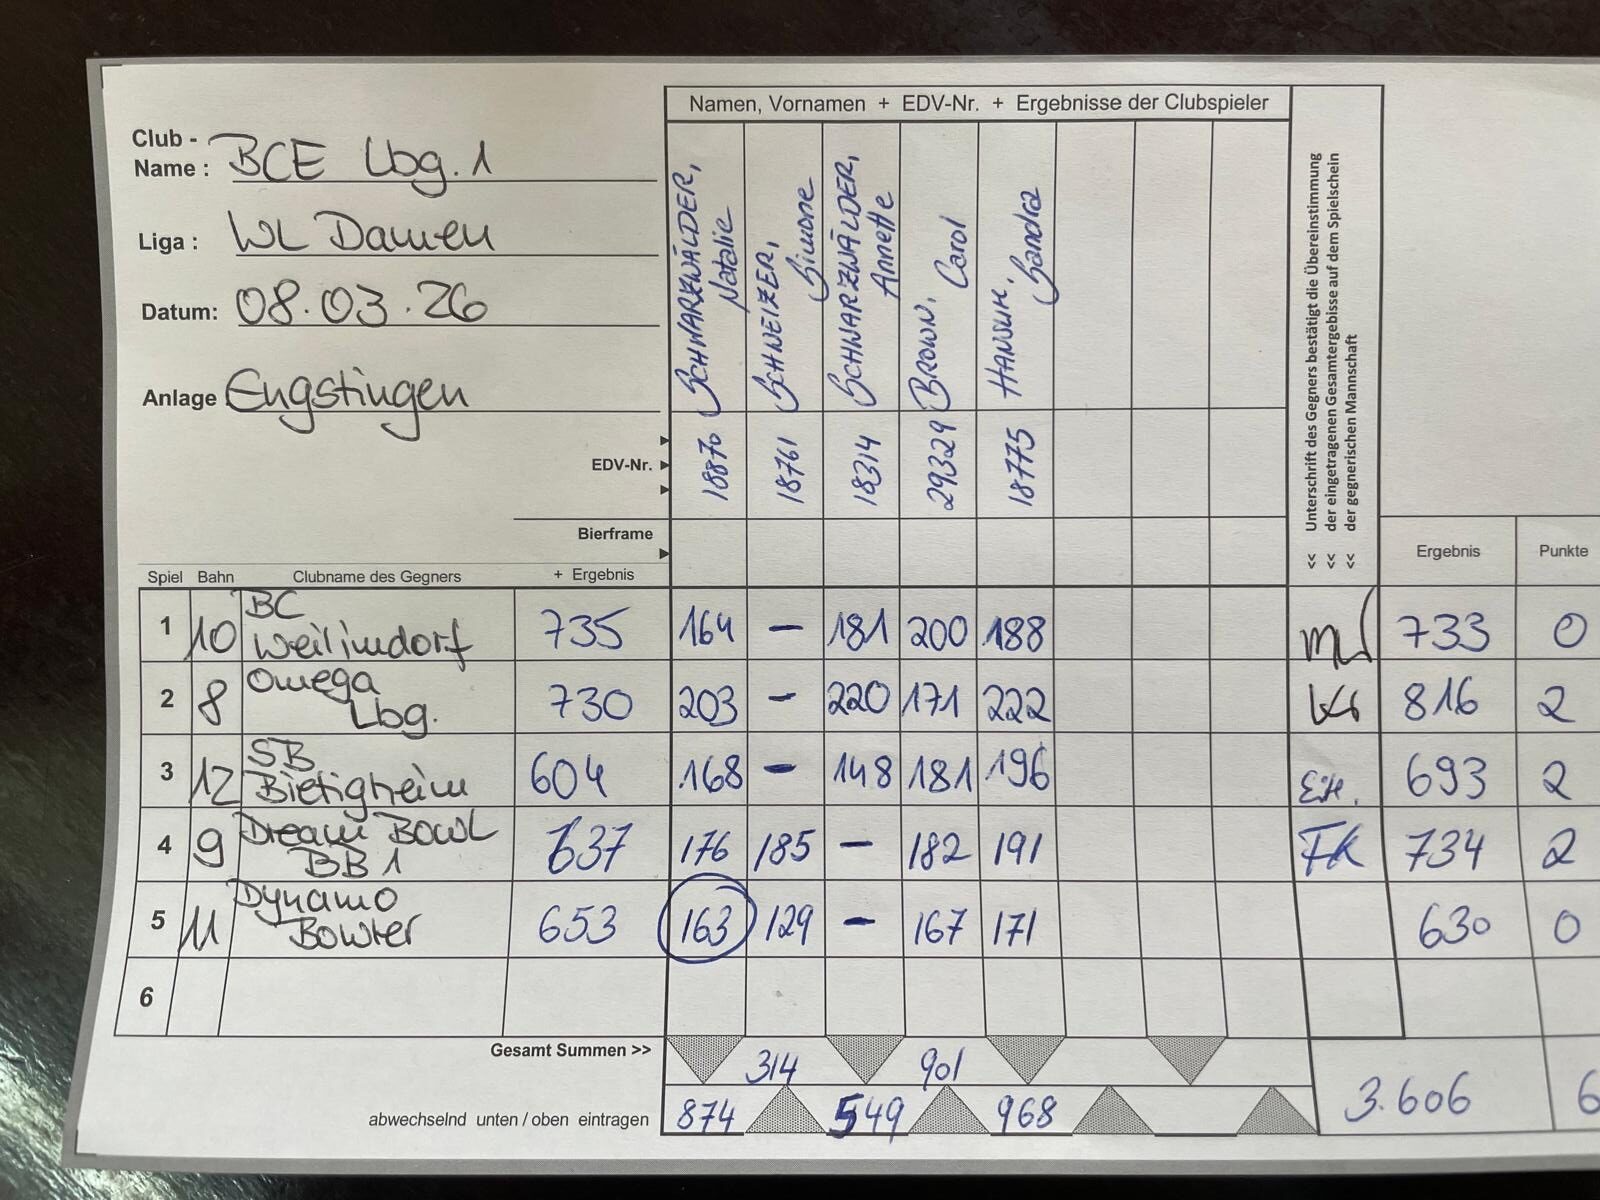 Namen, Vornamen + EDV-Nr. + Ergebnisse der Clubspieler
Club -
Name : BCE Lbg. 1
Liga : WL Damen
Datum: 08.03.26
Anlage Engstingen
SCHWARZWÄLDER, Natalie
SCHWEIZER, Simone
SCHWARZWÄLDER, Annette
BROWN, Carol
HANSUK, Sandra
<< Unterschrift des Gegners bestätigt die Übereinstimmung
<< der eingetragenen Gesamtergebisse auf dem Spielschein
<< der gegnerischen Mannschaft
EDV-Nr. 18870 18761 18314 29329 18775
Bierframe
Ergebnis Punkte
Spiel Bahn Clubname des Gegners + Ergebnis
1 10 BC Weilimdorf 735 164 – 181 200 188 733 0
2 8 Omega Lbg. 730 203 – 220 171 222 816 2
3 12 SB Bietigheim 604 168 – 148 181 196 EH. 693 2
4 9 Dream BOWL BB 1 637 176 185 – 182 191 FK 734 2
5 11 Dynamo Bowler 653 163 129 – 167 171 630 0
6
Gesamt Summen >> 314 901
abwechselnd unten / oben eintragen 874 549 968 3.606 6